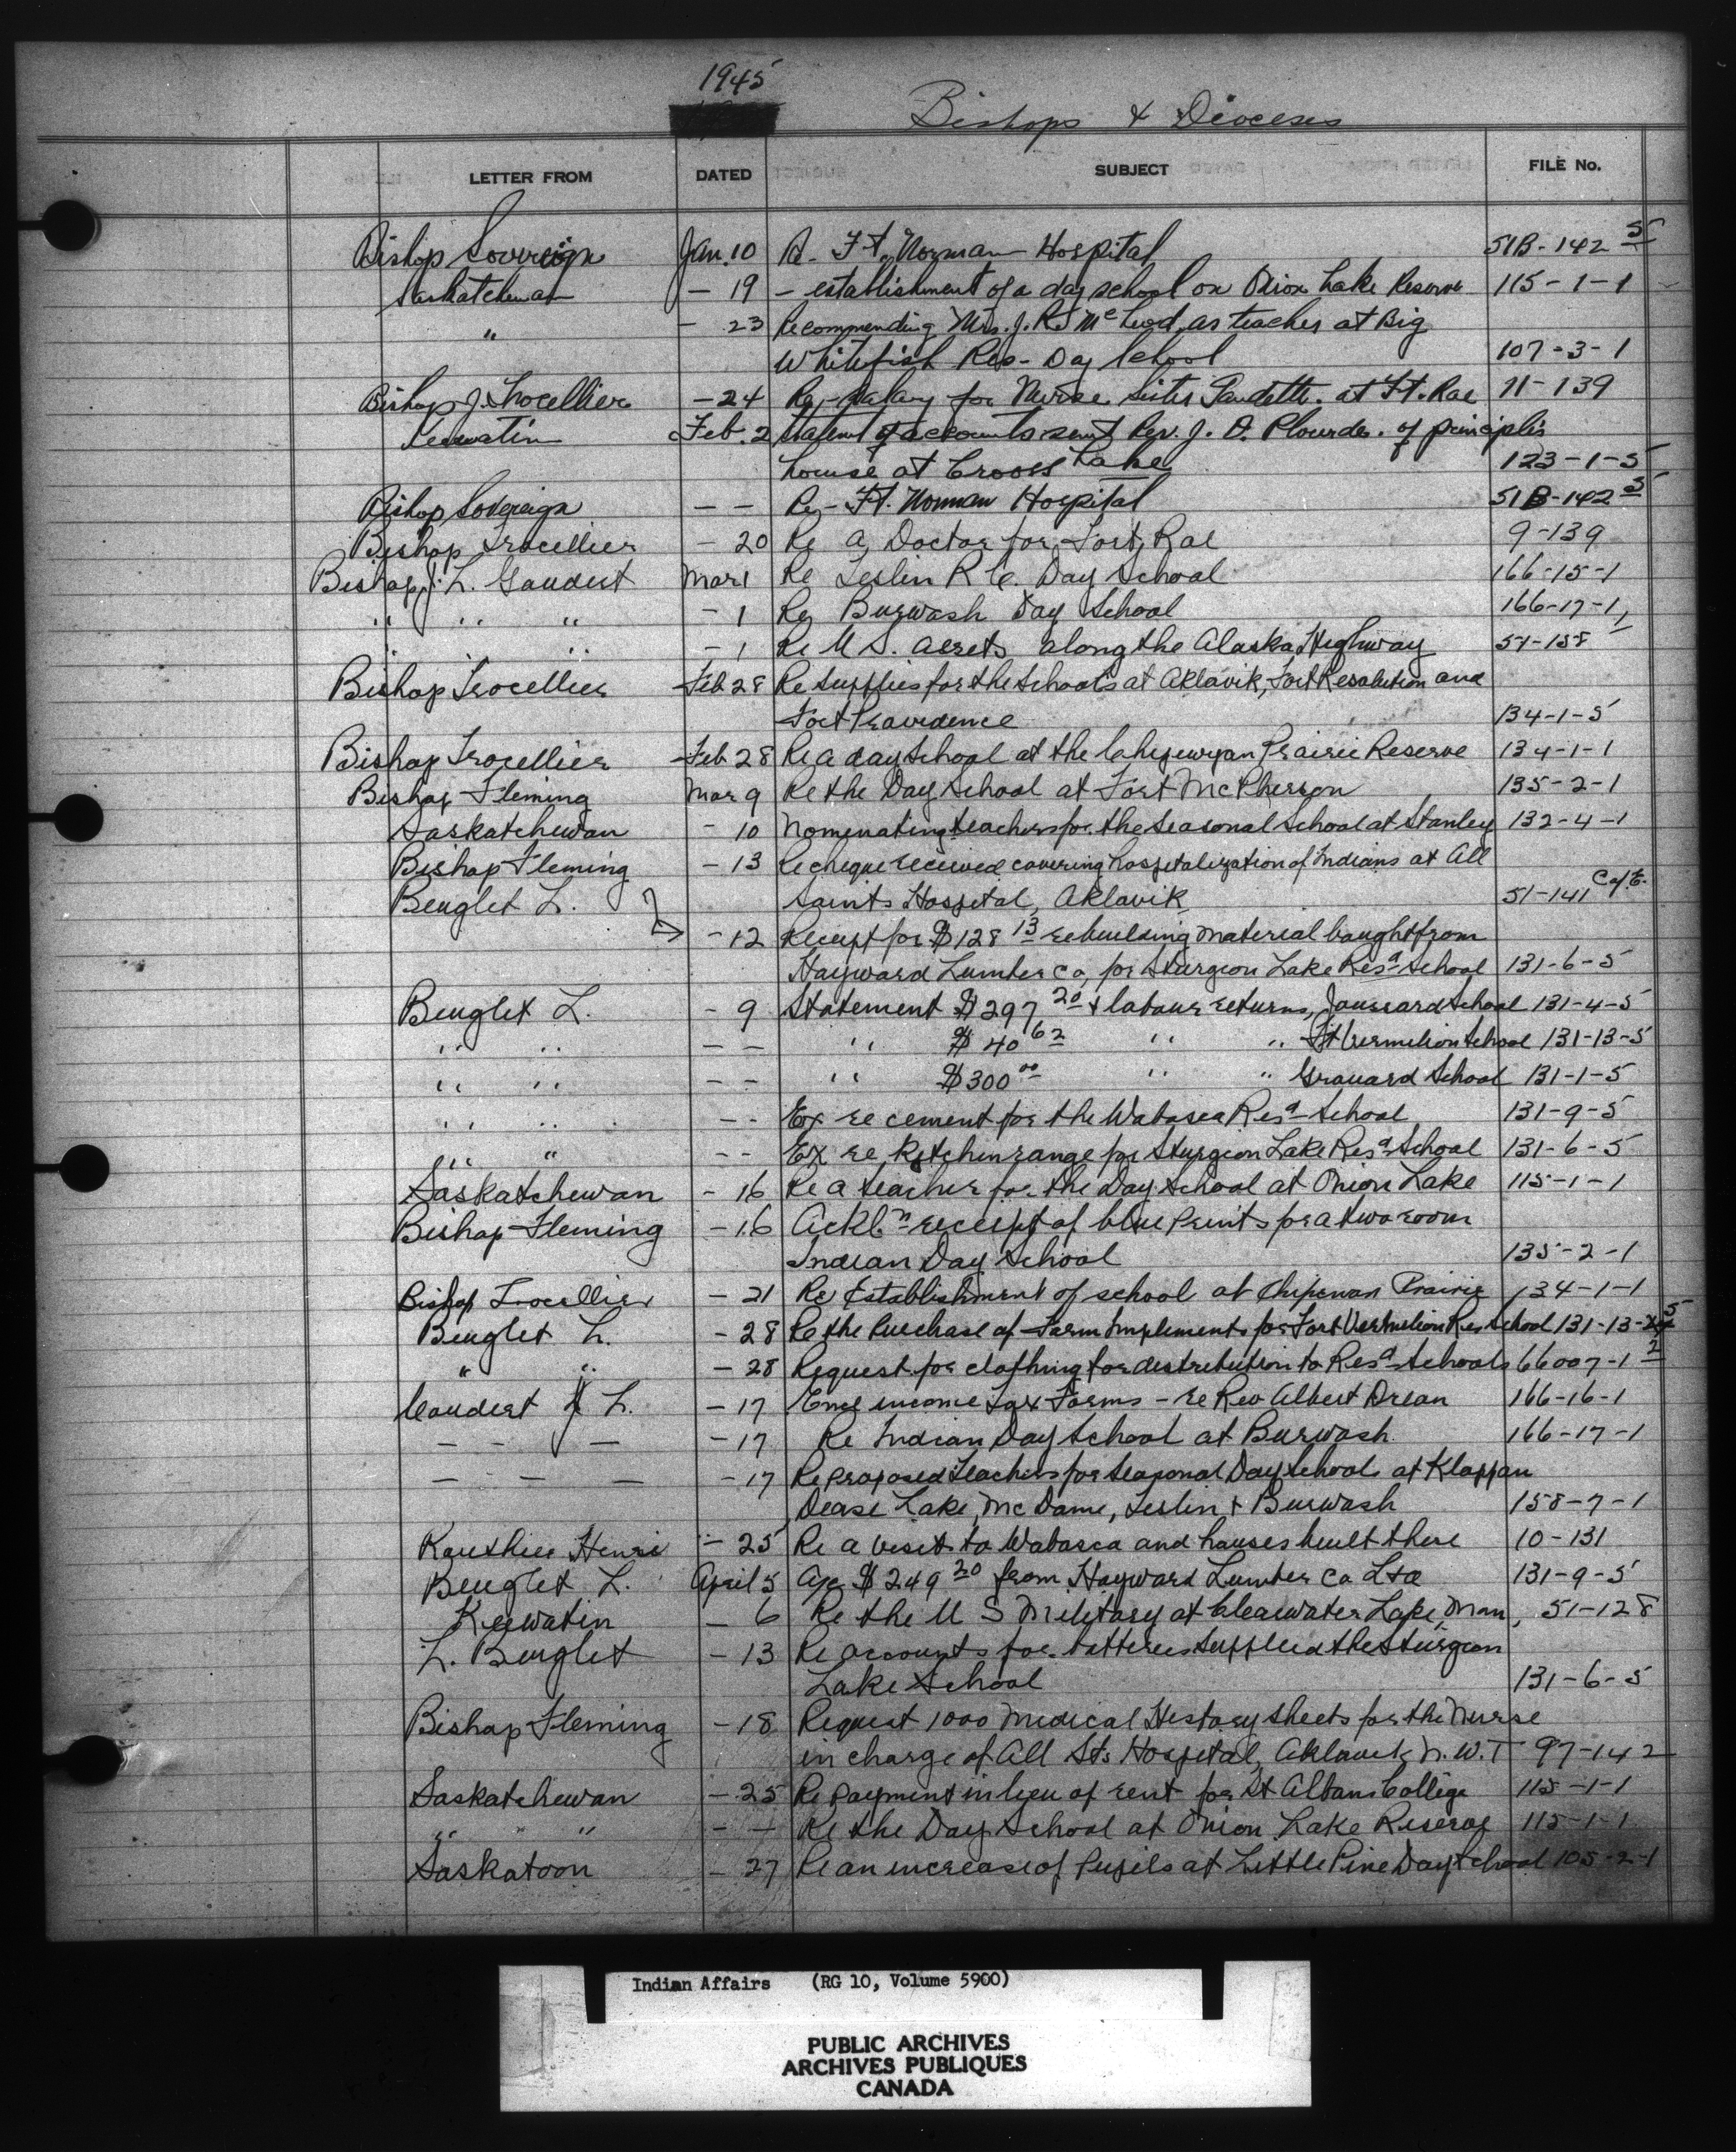 1945
Bishops & Dioceses
LETTER FROM DATED SUBJECT FILE No.
Bishop Sovereign Jan. 10 Re - Ft. Norman Hospital 51B-142 5
Saskatchewan - 19 - establishment of a day school on Onion Lake Reserve 115-1-1
" - 23 Recommending Mrs. J. R. McLeod, as teacher at Big
Whitefish Res - Day School 107-3-1
Bishop J. Trocellier - 24 Re - Salary for Nurse Sister Gaudette. at Ft. Rae 11-139
Keewatin Feb. 2 Statem't of accounts sent Rev. J. O. Plourde. of principlis
house at Cross Lake 123-1-5
Bishop Sovereign - - Re - Ft. Norman Hospital 51B-142 5
Bishop Trocellier - 20 Re a Doctor for Fort Rae 9-139
Bishop J. L. Coudert Mar 1 Re Teslin R C. Day School 166-15-1
" " " - 1 Re Burwash Day School 166-17-1
" " - 1 Re U S. along the Alaska Highway 51-158
Bishop Trocellier Feb 28 Re supplies for the Schools at Aklavik, Fort Resolution and
Fort Providence 134-1-5
Bishop Trocellier Feb 28 Re a day School at the Prairie Reserve 134-1-1
Bishop Fleming Mar 9 Re the Day School at Fort McPherson 135-2-1
Saskatchewan - 10 Nominating teachers for the Seasonal School at Stanley 132-4-1
Bishop Fleming - 13 Re cheque received covering hospitalization of Indians at All
Beuglet L. Saints Hospital, Aklavik 51-141
- 12 Receipt for $128 13 re building material bought from
Hayward Lumber Co, for Sturgeon Lake Resa School 131-6-5
Beuglet L. - 9 Statement $297 20 & labour returns, Joussard School 131-4-5
" " - - " $40 62 " " Ft Vermilion School 131-13-5
" " - - " $300 00 " " Grouard School 131-1-5
" " - - Ex re cement for the Wabasca Resa School 131-9-5
" " - - Ex re Kitchen range for Sturgeon Lake Resa School 131-6-5
Saskatchewan - 16 Re a teacher for the Day School at Onion Lake 115-1-1
Bishop Fleming - 16 receipt of blue prints for a two room
Indian Day School 135-2-1
Bishop Trocellier - 21 Re Establishment of school at Chipewan Prairie 134-1-1
Beuglet L. - 28 Re the Purchase of Farm Implements for Fort Vermilion Res School 131-13-5
" " - 28 Request for clothing for distribution to Resa Schools 66007-1 2
Coudert J L. - 17 Encl income Tax Forms - re Rev Albert Drean 166-16-1
- - - - 17 Re Indian Day School at Burwash 166-17-1
- - - - 17 Re proposed Teachers for Seasonal Day Schools at Klappan
Dease Lake, McDame, Teslin & Burwash 158-7-1
Routhier Henri - 25 Re a visit to Wabasca and houses built there 10-131
Beuglet L. April 5 a/c $249 20 from Hayward Lumber Co Ltd 131-9-5
Keewatin - 6 Re the U S Military at Clearwater Lake, Man, 51-128
L. Beuglet - 13 Re accounts for batteries supplied the Sturgeon
Lake School 131-6-5
Bishop Fleming - 18 Request 1000 Medical History sheets for the Nurse
in charge of All Sts Hospital, Aklavik N.W.T 97-142
Saskatchewan - 25 Re payment in lieu of rent for St Albans College 115-1-1
" " - - Re the Day School at Onion Lake Reserve 115-1-1
Saskatoon - 27 Re an increase of Pupils at Little Pine Day School 105-2-1
Indian Affairs (RG 10, Volume 5900)
PUBLIC ARCHIVES
ARCHIVES PUBLIQUES
CANADA